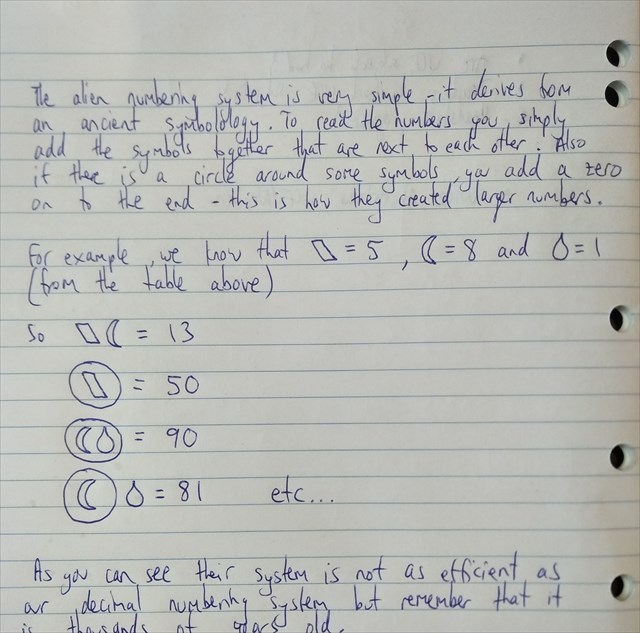 The alien numbering system is very simple - it derives from
an ancient symbolology. To read the numbers you simply
add the symbols together that are next to each other. Also
if there is a circle around some symbols, you add a zero
on to the end - this is how they created larger numbers.
For example, we know that = 5, = 8 and = 1
(from the table above)
So = 13
= 50
= 90
= 81 etc...
As you can see their system is not as efficient as
our decimal numbering system but remember that it
is thousands of years old.